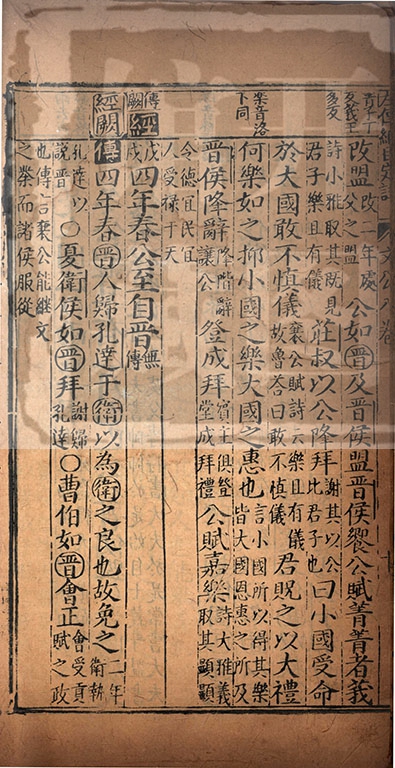 樂音洛下同
改盟改二年處父之盟公如晉及晉侯盟晉侯饗公賦菁菁者莪
詩小雅取其既見君子樂且有儀莊叔以公降拜謝其以公比君子也曰小國受命
於大國敢不慎儀襄公賦詩云樂且有儀故魯答曰敢不慎儀君貺之以大禮
何樂如之抑小國之樂大國之惠也言小國所以得其樂皆大國恩惠之所及
晉侯降辭降階辭讓公登成拜賓主俱登堂成拜禮公賦嘉樂詩大雅義取其顯顯
令德宜民宜人受禄于天
傳闕經戊戌四年春公至自晉無傳
經闕傳四年春晉人歸孔達于衛以為衛之良也故免之二年衛執
孔達以說晉○夏衛侯如晉拜謝歸孔達○曹伯如晉會正會受貢賦之政
也傳言襄公能継文之業而諸侯服從